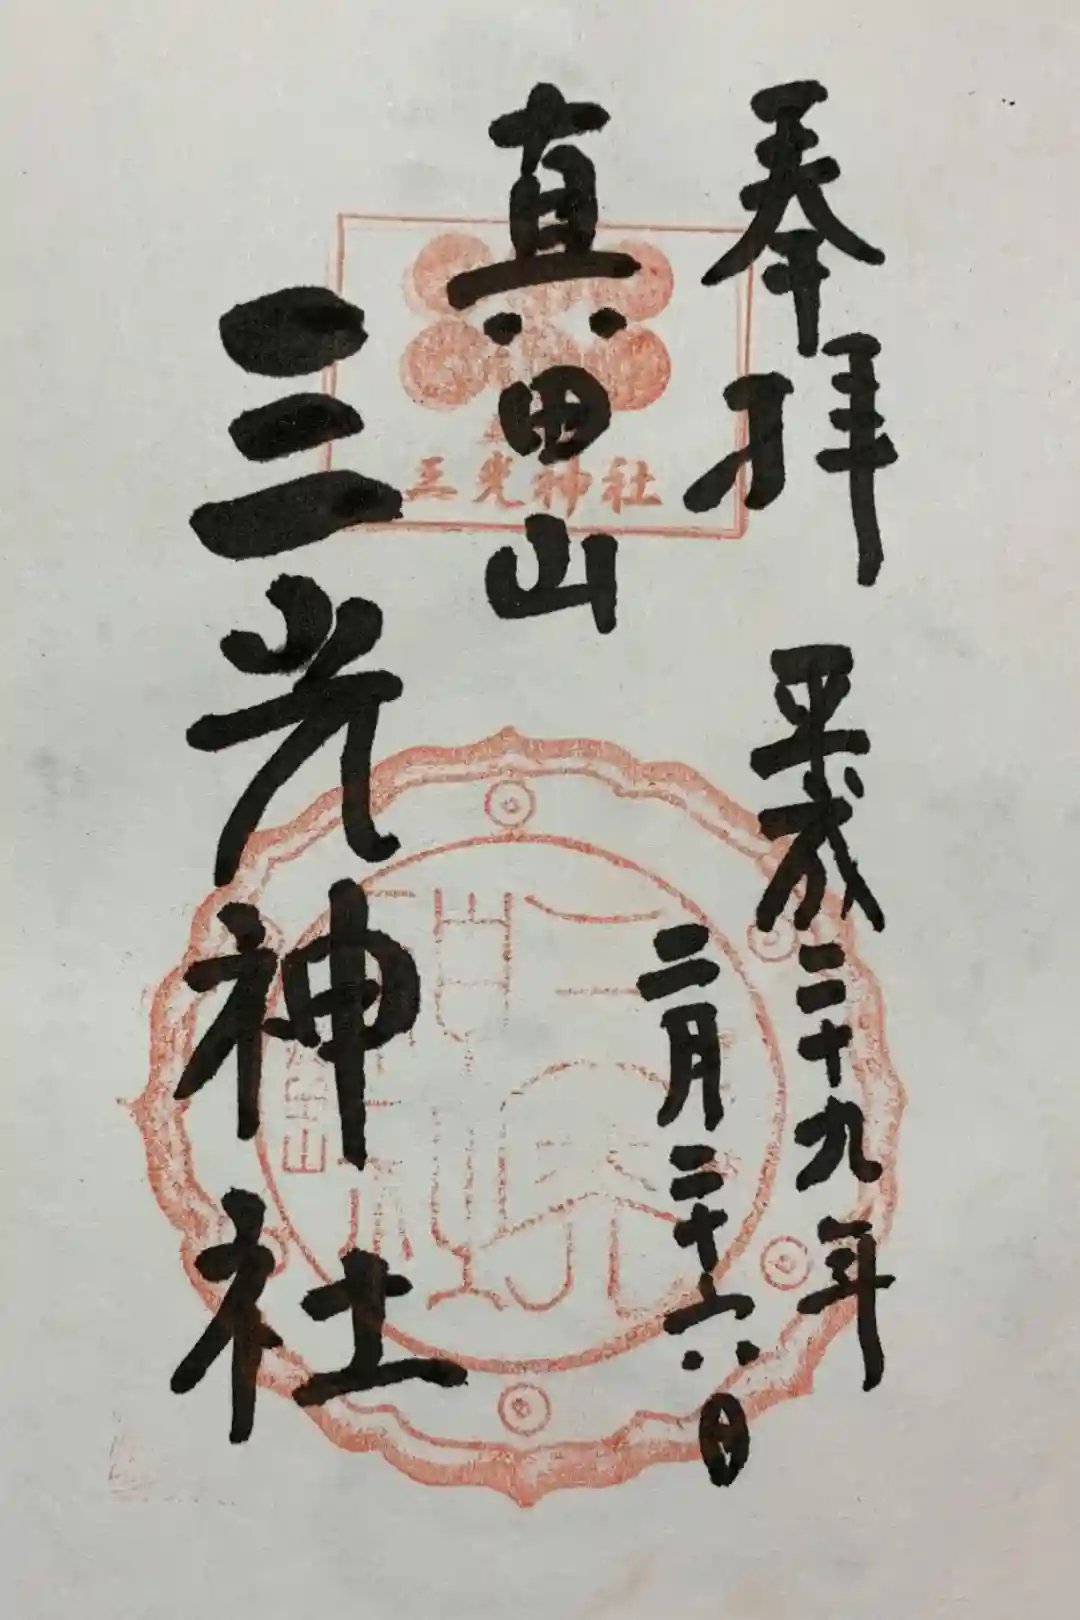 奉拝
平成二十九年
二月二十六日
真田山
三光神社
三光神社